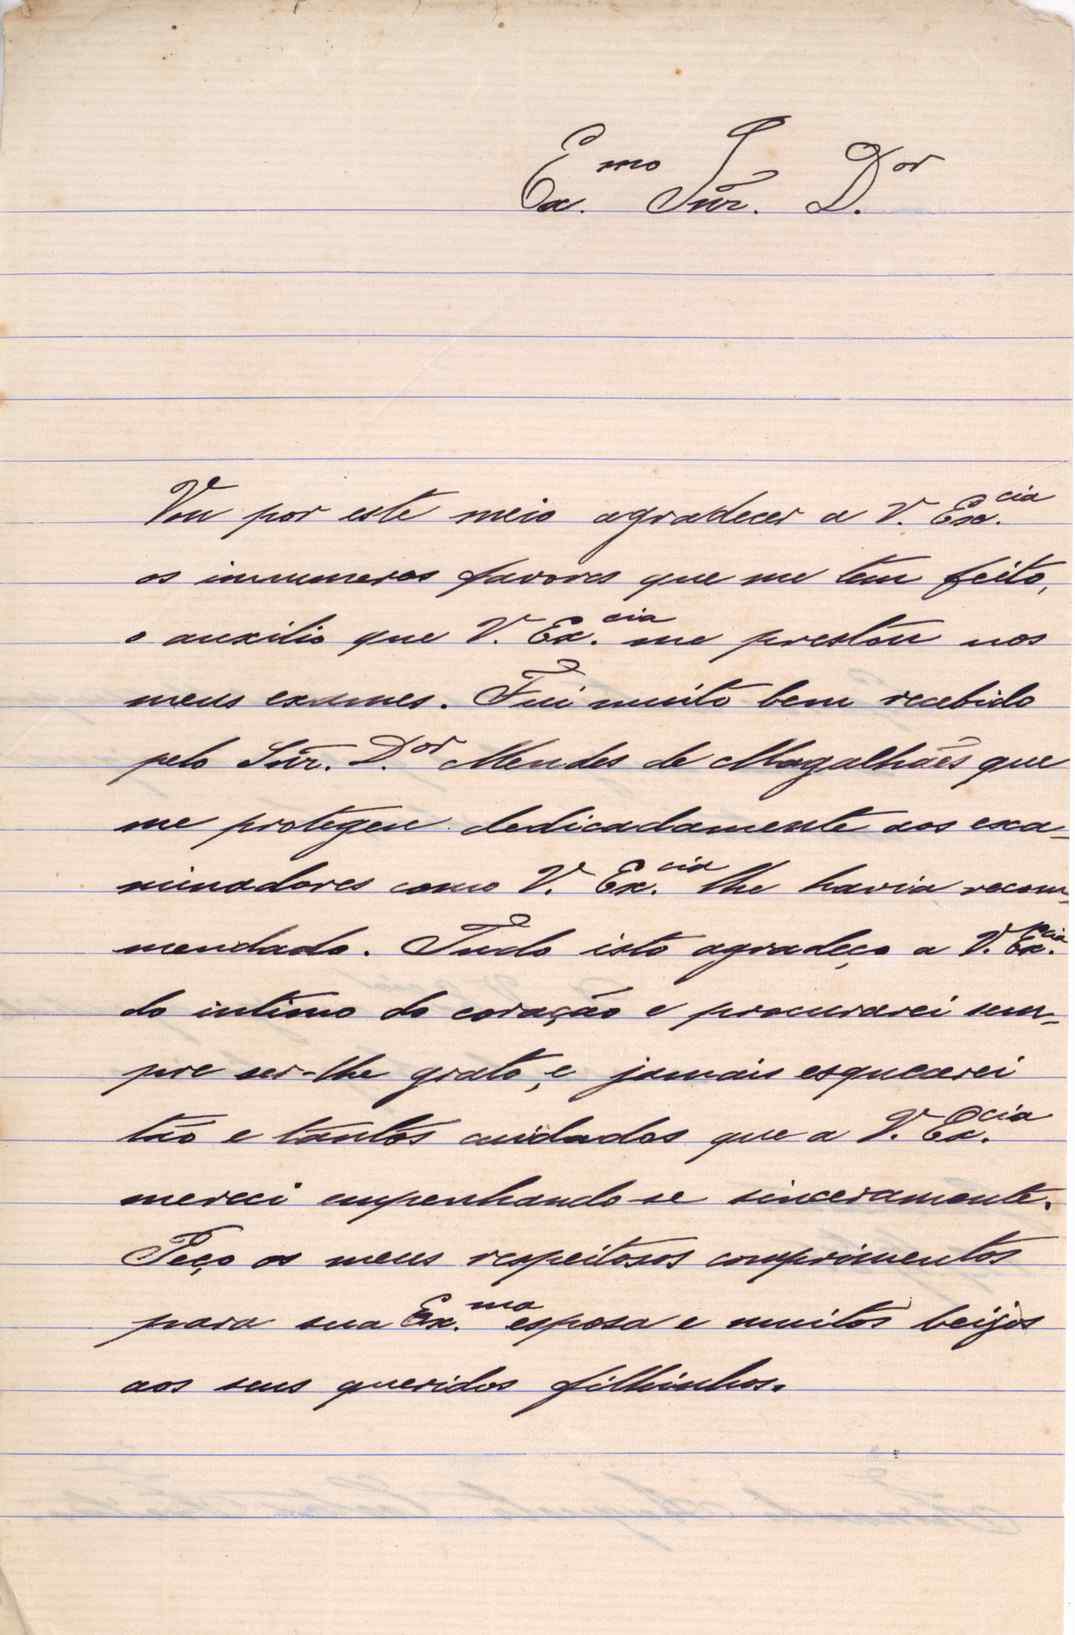 Ex.mo Snr. D.or
Vou por este meio agradecer a V. Ex.cia
os innumeros favores que me tem feito,
o auxilio que V. Ex.cia me prestou nos
meus exames. Fui muito bem recebido
pelo Snr. D.or Mendes de Magalhães que
me protegeu dedicadamente aos exa-
minadores como V. Ex.cia lhe havia recom-
mendado. Tudo isto agradeço a V. Ex.cia
do intimo do coração e procurarei sem-
pre ser-lhe grato, e jamais esquecerei
tão e tantos cuidados que a V. Ex.cia
mereci empenhando-se sinceramente.
Peço os meus respeitosos comprimentos
para sua Ex.ma esposa e muitos beijos
aos seus queridos filhinhos.